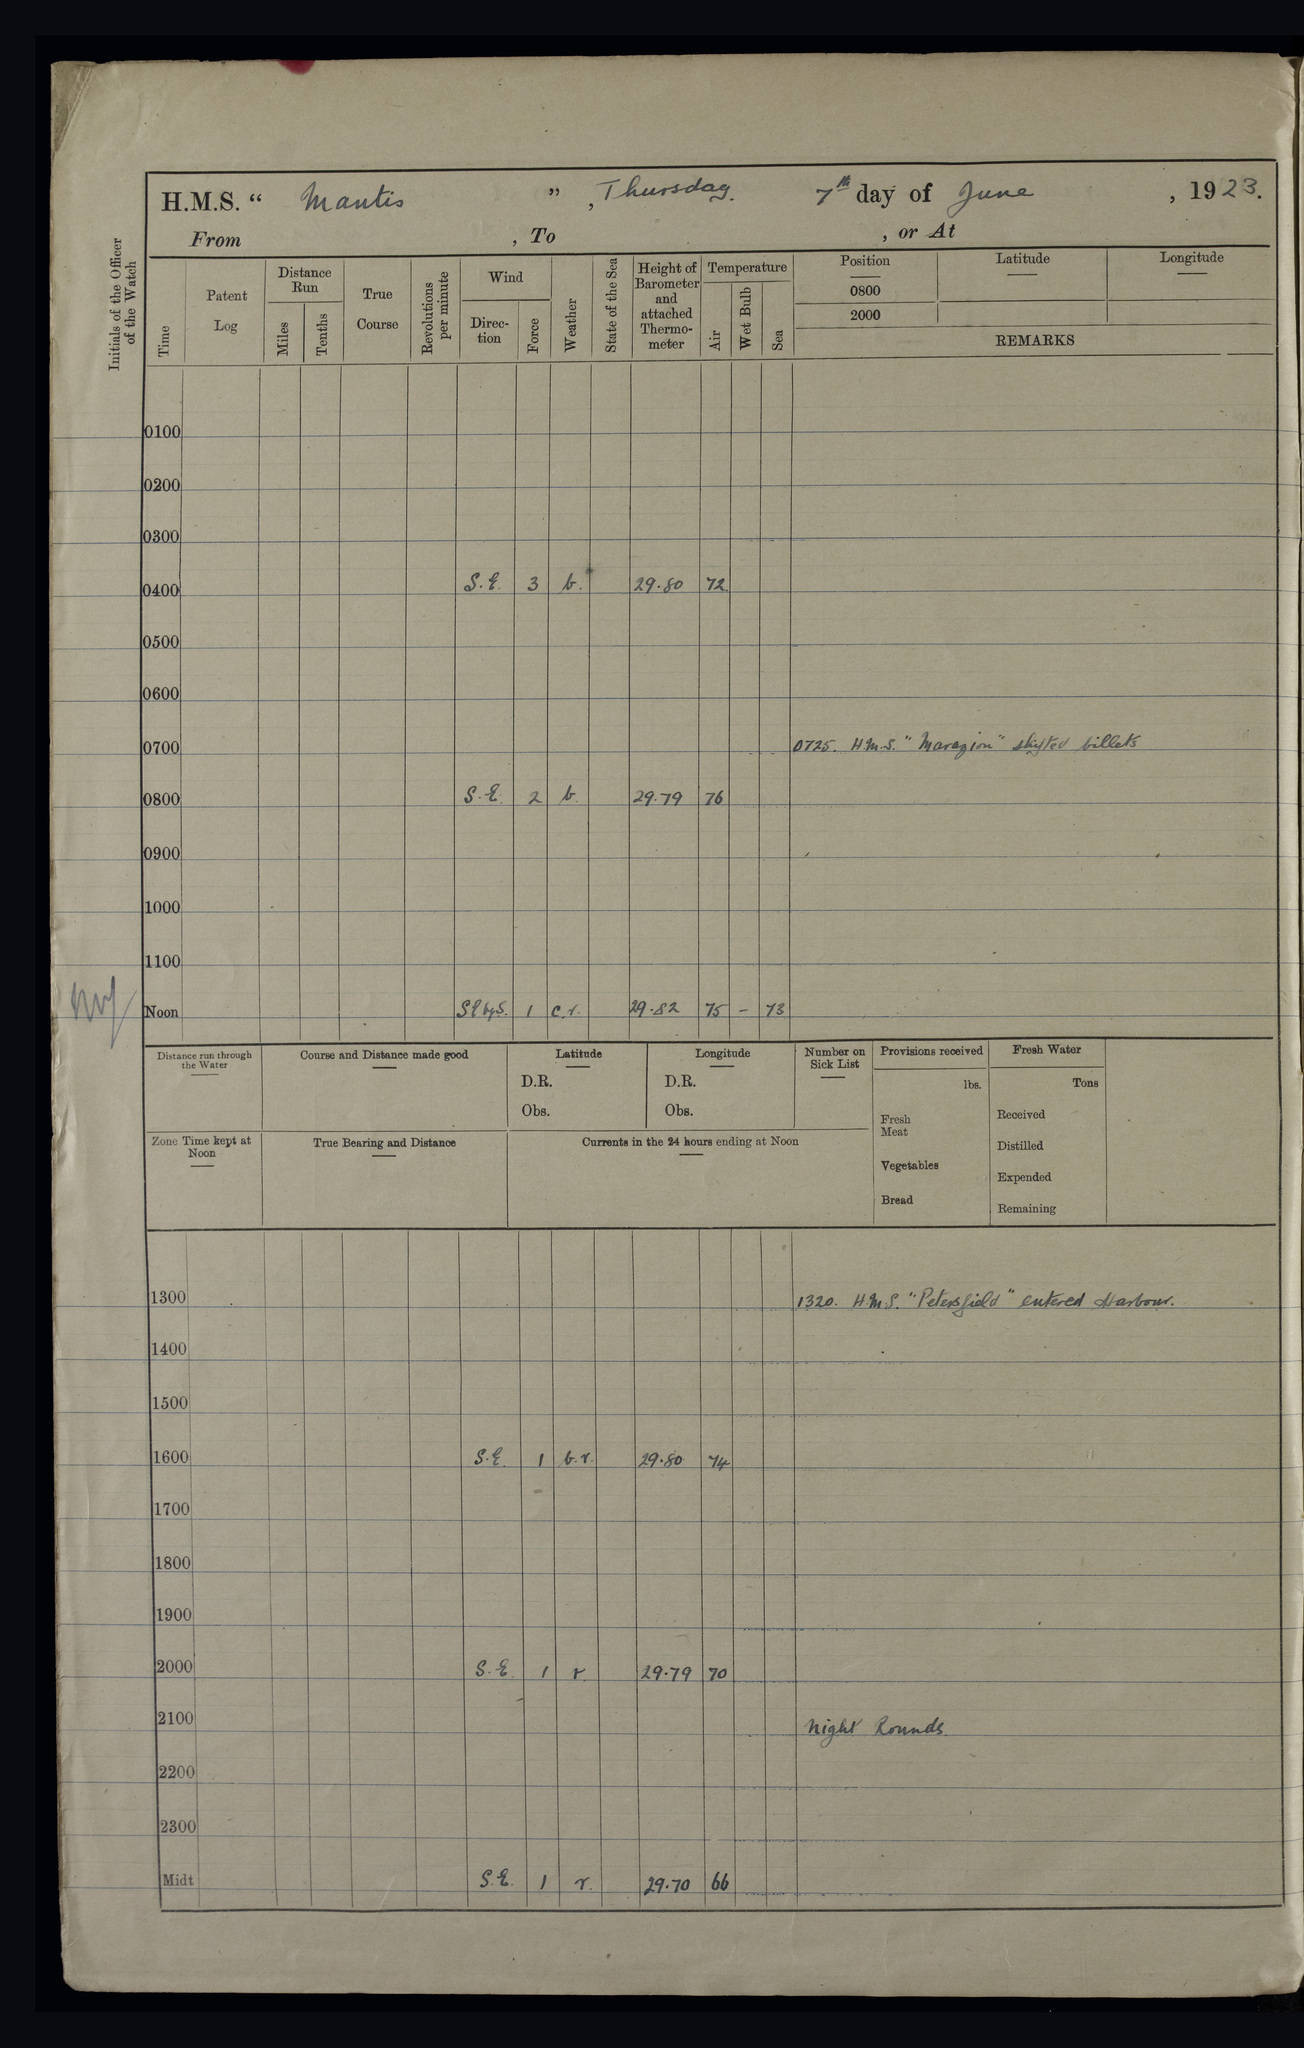 H.M.S. “ Mantis ”, Thursday. 7th day of June, 1923.
From , To , or At
Initials of the Officer of the Watch
Time
Patent Log
Distance Run
Miles
Tenths
True Course
Revolutions per minute
Wind
Direc-
tion
Force
Weather
State of the Sea
Height of Barometer and attached Thermo-
meter
Temperature
Air
Wet Bulb
Sea
Position
Latitude
Longitude
0800
2000
REMARKS
0100
0200
0300
0400 S.E. 3 b. 29.80 72
0500
0600
0700 0725. H.M.S. "Marazion" shifted billets
0800 S.E. 2 b. 29.79 76
0900
1000
1100
Noon SE by S. 1 c.r. 29.82 75 - 73
Distance run through the Water
Course and Distance made good
Latitude
D.R.
Obs.
Longitude
D.R.
Obs.
Number on Sick List
Provisions received
lbs.
Fresh Meat
Vegetables
Bread
Fresh Water
Tons
Received
Distilled
Expended
Remaining
Zone Time kept at Noon
True Bearing and Distance
Currents in the 24 hours ending at Noon
1300 1320. H.M.S. "Petersfield" entered Harbour.
1400
1500
1600 S.E. 1 b.r. 29.80 74
1700
1800
1900
2000 S.E. 1 r. 29.79 70
2100 Night Rounds.
2200
2300
Midt S.E. 1 r. 29.70 66